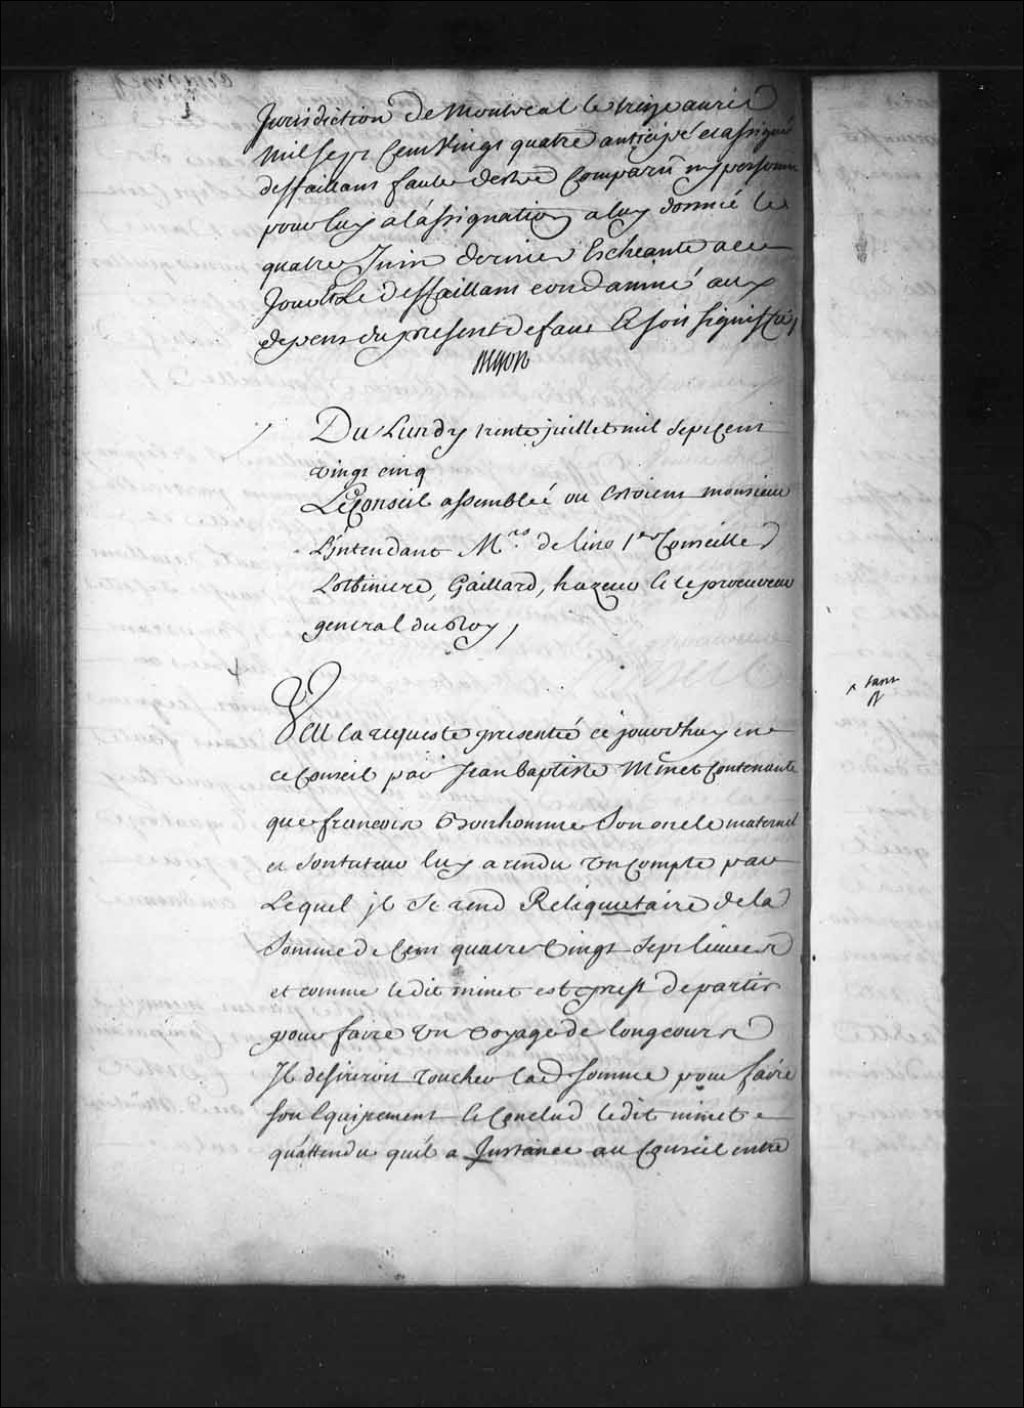 Jurisdiction de Montreal le treize avril
mil sept cent vingt quatre anticipé et assigné
deffaillant faute destre comparu ny personne
pour luy a l'assignation a luy donnée le
quatre Juin dernier Escheante a ce
Jour Et Le deffaillant condamné aux
depens du present defaut Et soit signiffié,
Du Lundy trente juillet mil sept cent
vingt cinq
Le Conseil assemblée ou Estoient monsieur
L'intendant Mrs. de lino 1er Conseiller
Lotbiniere, Gaillard, hazeur Et le procureur
general du Roy,
Veu la requeste presentée ce jourd'huy en
ce Conseil par Jean baptiste Minet Contenante
que francois Bonhomme Son oncle maternel
et Son tuteur luy a rendu un compte par
Lequel jl Se rend Reliquetaire de la
Somme de Cent quatre Vingt Sept livres
et comme ledit minet est prest de partir
pour faire un Voyage de long cours
Jl desireroit toucher lad somme pour faire
son Equipement Et Conclud ledit minet
qu'attendu qu'il a Instance au Conseil entre